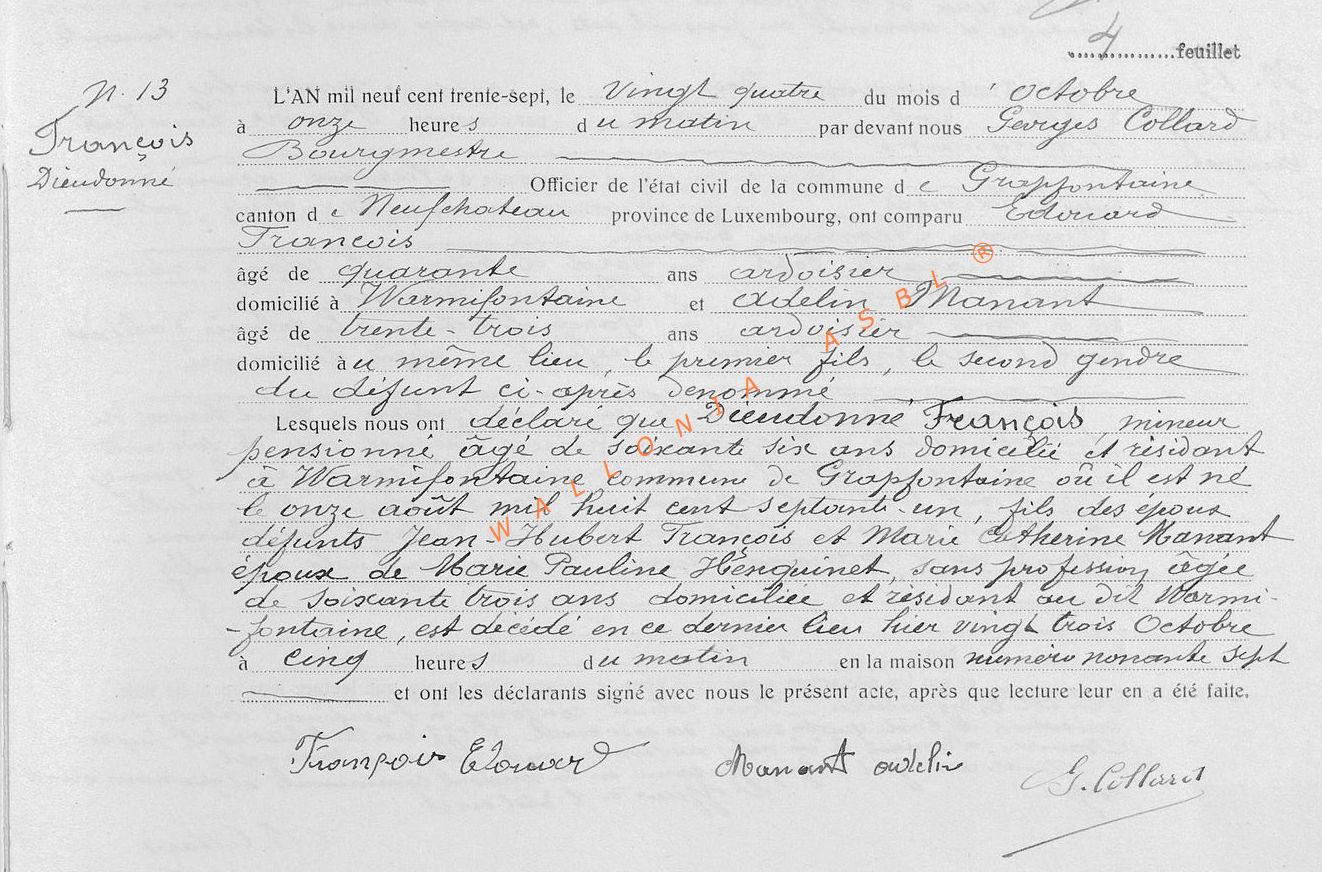 4 feuillet
N. 13
François
Dieudonné
L'AN mil neuf cent trente-sept, le vingt quatre du mois d'octobre
à onze heures du matin par devant nous Georges Collard
Bourgmestre
Officier de l'état civil de la commune de Grapfontaine
canton de Neufchateau province de Luxembourg, ont comparu Edouard
Francois
âgé de quarante ans ardoisier
domicilié à Warmifontaine et Adelin Manant
âgé de trente-trois ans ardoisier
domicilié au même lieu, le premier fils, le second gendre
du défunt ci-après denommé
Lesquels nous ont déclaré que Dieudonné François, mineur
pensionné âgé de soixante six ans domicilié et résidant
à Warmifontaine commune de Grapfontaine où il est né
le onze août mil huit cent septante-un, fils des épous
défunts Jean-Hubert François et Marie Catherine Manant
époux de Marie Pauline Henquinet, sans profession âgée
de soixante trois ans domiciliée et résidant au dit Warmi-
-fontaine, est décédé en ce dernier lieu hier vingt trois Octobre
à cinq heures du matin en la maison numéro nonante sept
et ont les déclarants signé avec nous le présent acte, après que lecture leur en a été faite,
François Edouard Manant adelin G. Collard
WALLONIA ASBL ®